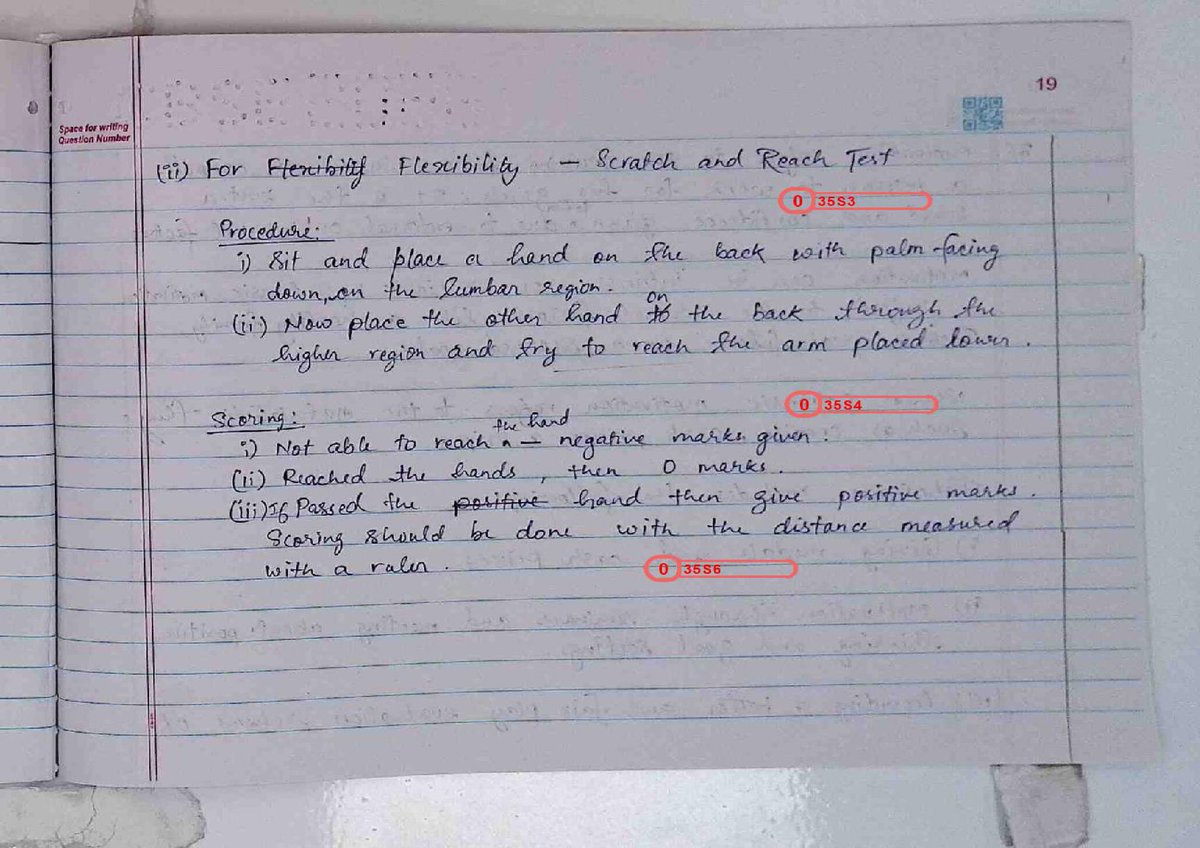 19
Space for writing
Question Number
(ii) For Flexibility Flexibility — Scratch and Reach Test
0 35S3
Procedure:
i) Sit and place a hand on the back with palm facing
down, on the lumbar region.
on
(ii) Now place the other hand to the back through the
higher region and try to reach the arm placed lower.
0 35S4
Scoring:
the hand
i) Not able to reach a — negative marks given.
(ii) Reached the hands, then 0 marks.
(iii) If Passed the positive hand then give positive marks.
Scoring should be done with the distance measured
with a ruler.
0 35S6